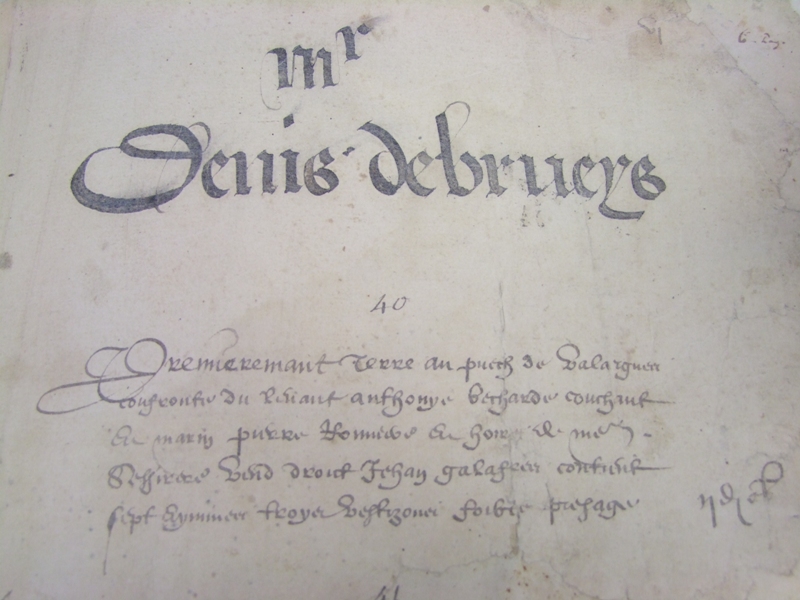 mr
Denis debrueys
40
Premieremant terre au puech de Valargues
confronte du levant anthonye becharde couchant
du marin pierre du hoir de
vend droict Jehan galafres contient
sept eymines troyes vestizones foible presage
41